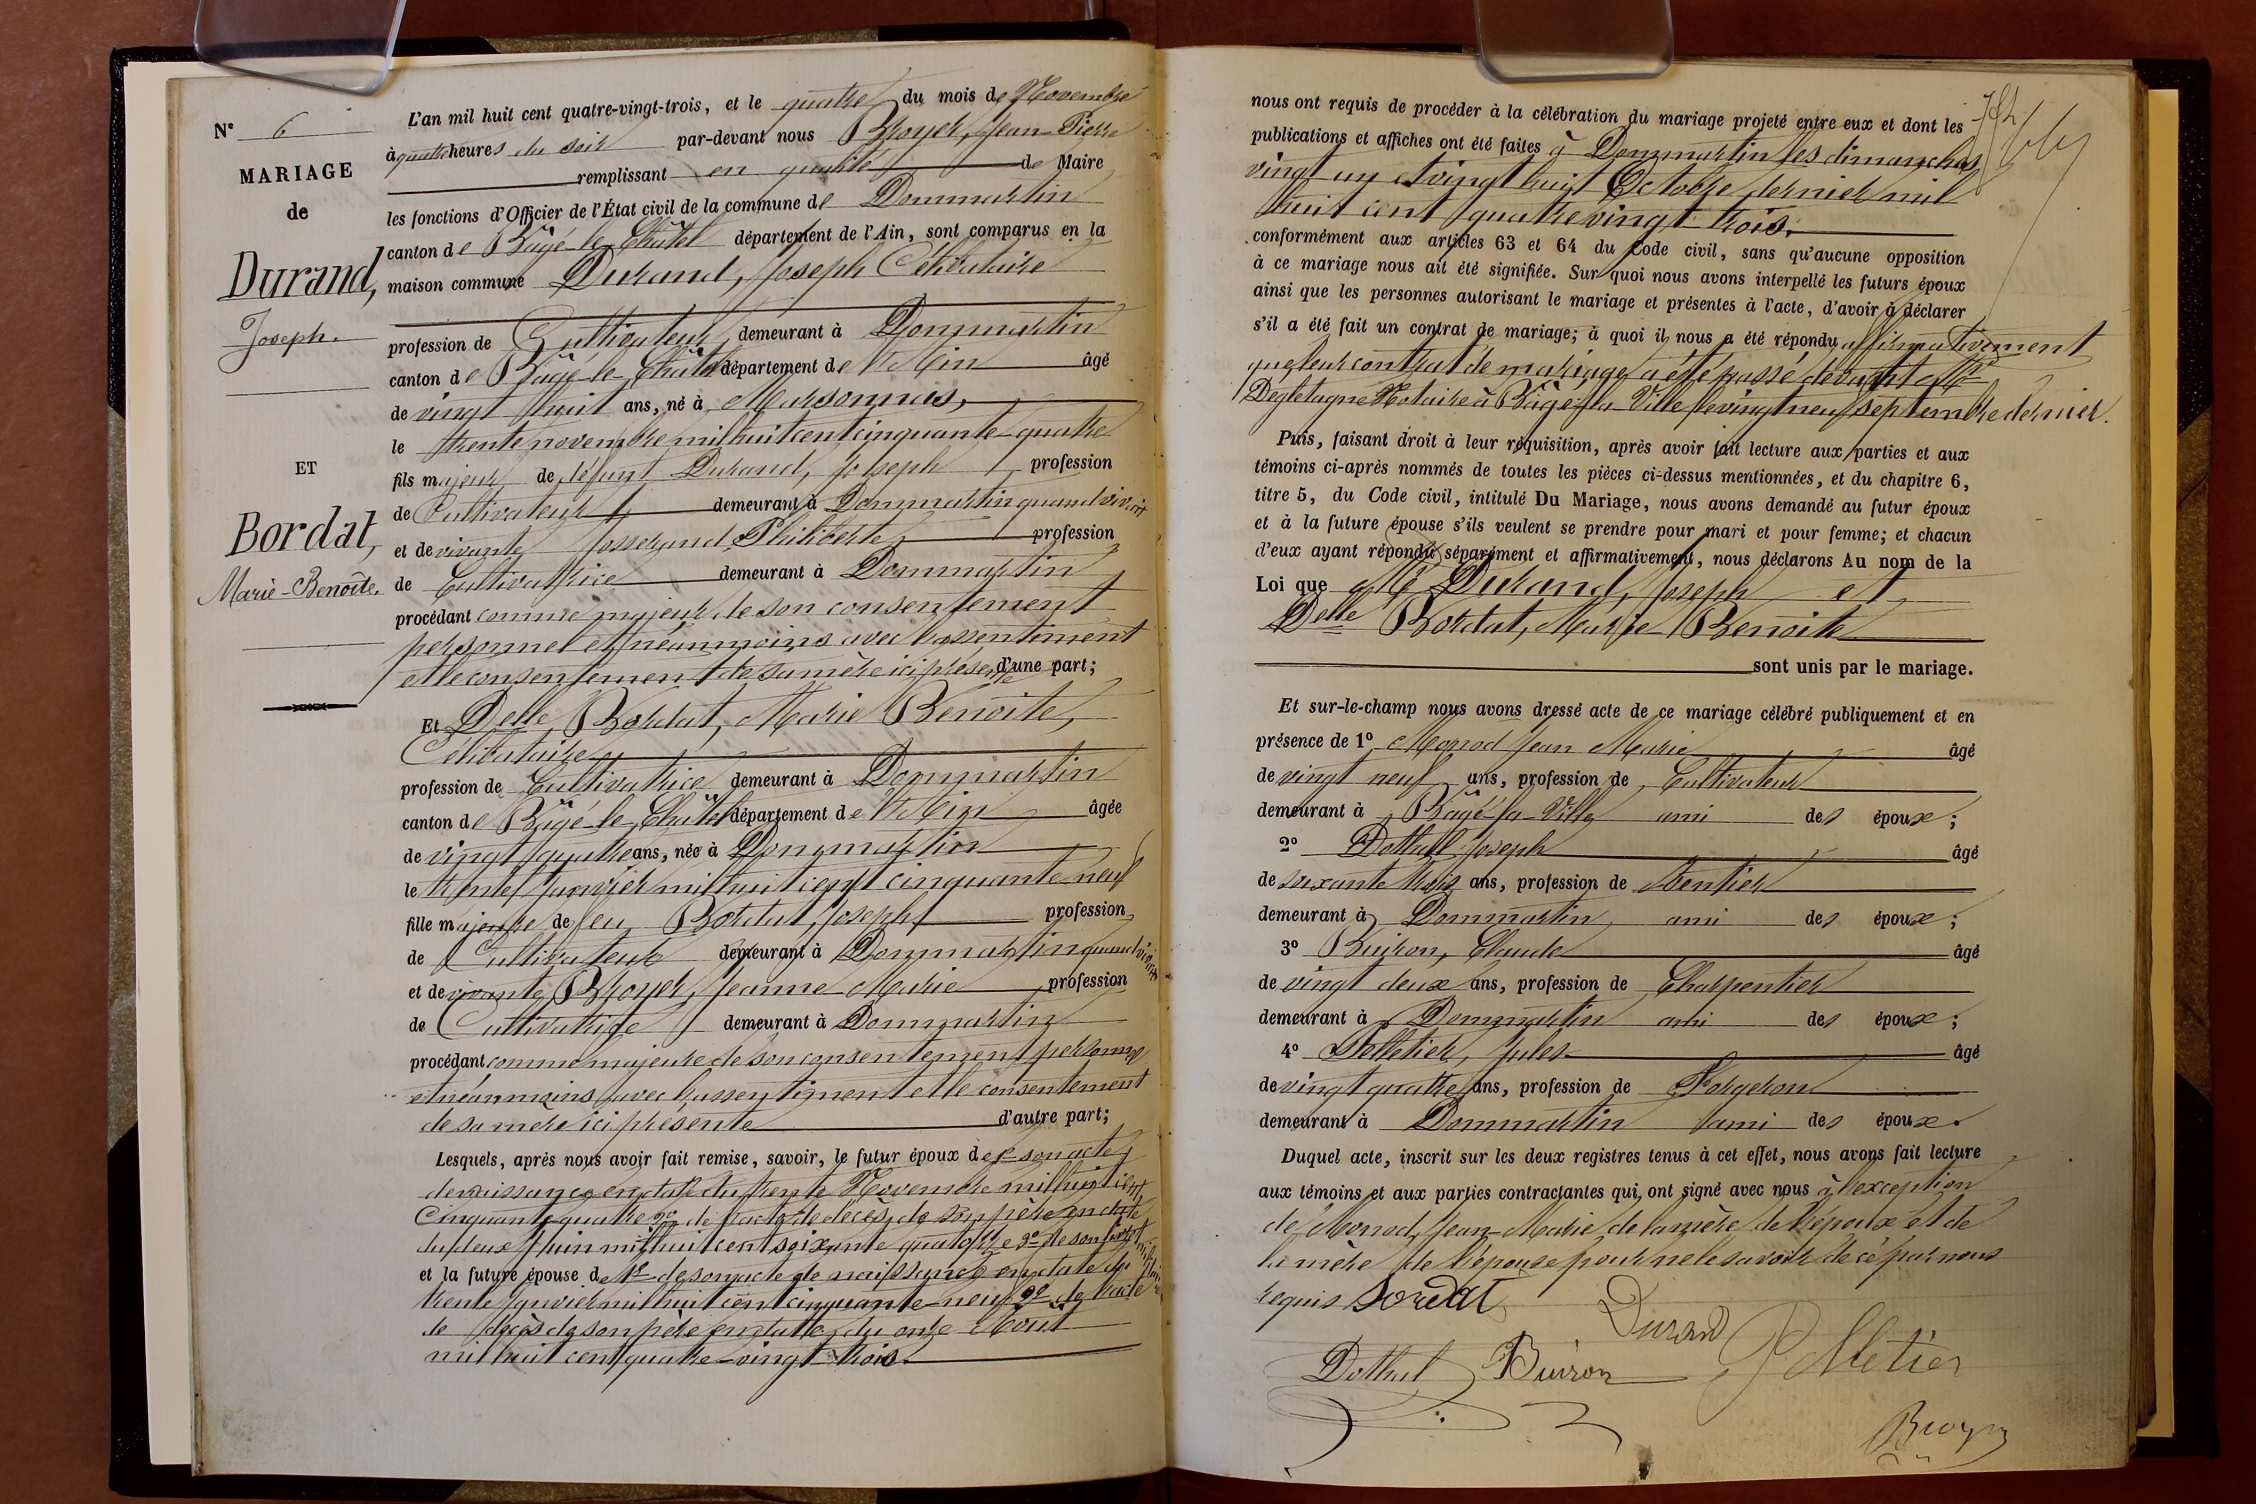 N° 6
MARIAGE
de
Durand,
Joseph.
ET
Bordat,
Marie-Benoîte.
L'an mil huit cent quatre-vingt-trois, et le quatre du mois de Novembre
à quatre heures du soir par-devant nous Broyer, Jean-Pierre
remplissant en qualité de Maire
les fonctions d'Officier de l'État civil de la commune de Dommartin
canton de Bâgé-le-Châtel département de l'Ain, sont comparus en la
maison commune Durand, Joseph Célibataire
profession de Cultivateur demeurant à Dommartin
canton de Bâgé-le-Châtel département de l'Ain âgé
de vingt huit ans, né à Marsonnas,
le trente novembre mil huit cent cinquante-quatre
fils majeur de défunt Durand, Joseph profession
de Cultivateur demeurant à Dommartin quand vivait
et de vivante Josserand, Philiberte profession
de Cultivatrice demeurant à Dommartin
procédant comme majeur de son consentement
personnel et néanmoins avec l'assentiment
et le consentement de sa mère ici présente d'une part;
Et Delle Bordat, Marie Benoîte,
Célibataire
profession de Cultivatrice demeurant à Dommartin
canton de Bâgé-le-Châtel département de l'Ain âgée
de vingt quatre ans, née à Dommartin
le trente Janvier mil huit cent cinquante-neuf
fille majeure de feu Bordat, Joseph profession
de Cultivateur demeurant à Dommartin quand vivait
et de vivante Broyer, Jeanne Marie profession
de Cultivatrice demeurant à Dommartin
procédant comme majeure de son consentement personnel
et néanmoins avec l'assentiment et le consentement
de sa mère ici présente d'autre part;
Lesquels, après nous avoir fait remise, savoir, le futur époux de 1° son acte
de naissance en date du trente Novembre mil huit cent
cinquante-quatre 2° de l'acte de décès de son père en date
du deux Juin mil huit cent soixante quatorze 3° de son
et la future épouse de 1° de son acte de naissance en date du
trente Janvier mil huit cent cinquante-neuf 2° de l'acte
de décès de son père en date du onze Août
mil huit cent quatre-vingt-trois.
nous ont requis de procéder à la célébration du mariage projeté entre eux et dont les
publications et affiches ont été faites à Dommartin les dimanches
vingt un et vingt huit Octobre dernier mil
huit cent quatre vingt-trois.
conformément aux articles 63 et 64 du Code civil, sans qu'aucune opposition
à ce mariage nous ait été signifiée. Sur quoi nous avons interpellé les futurs époux
ainsi que les personnes autorisant le mariage et présentes à l'acte, d'avoir à déclarer
s'il a été fait un contrat de mariage; à quoi il nous a été répondu affirmativement
que leur contrat de mariage a été passé devant Me
Degletagne Notaire à Bâgé-la-Ville le vingt neuf septembre dernier.
Puis, faisant droit à leur réquisition, après avoir fait lecture aux parties et aux
témoins ci-après nommés de toutes les pièces ci-dessus mentionnées, et du chapitre 6,
titre 5, du Code civil, intitulé Du Mariage, nous avons demandé au futur époux
et à la future épouse s'ils veulent se prendre pour mari et pour femme; et chacun
d'eux ayant répondu séparément et affirmativement, nous déclarons Au nom de la
Loi que Mr Durand, Joseph et
Delle Bordat, Marie Benoîte
sont unis par le mariage.
Et sur-le-champ nous avons dressé acte de ce mariage célébré publiquement et en
présence de 1° Monod Jean Marie âgé
de vingt neuf ans, profession de Cultivateur
demeurant à Bâgé-la-Ville ami des époux;
2° Dothal Joseph âgé
de soixante trois ans, profession de Rentier
demeurant à Dommartin ami des époux;
3° Buiron, Claude âgé
de vingt deux ans, profession de Charpentier
demeurant à Dommartin ami des époux;
4° Pelletier, Jules âgé
de vingt quatre ans, profession de Forgeron
demeurant à Dommartin ami des époux.
Duquel acte, inscrit sur les deux registres tenus à cet effet, nous avons fait lecture
aux témoins et aux parties contractantes qui ont signé avec nous à l'exception
de Monod, Jean-Marie de la mère de l'époux et de
la mère de l'épouse pour ne le savoir de ce par nous
requis Bordat
Durand
Dothal Buiron Pelletier
Broyer